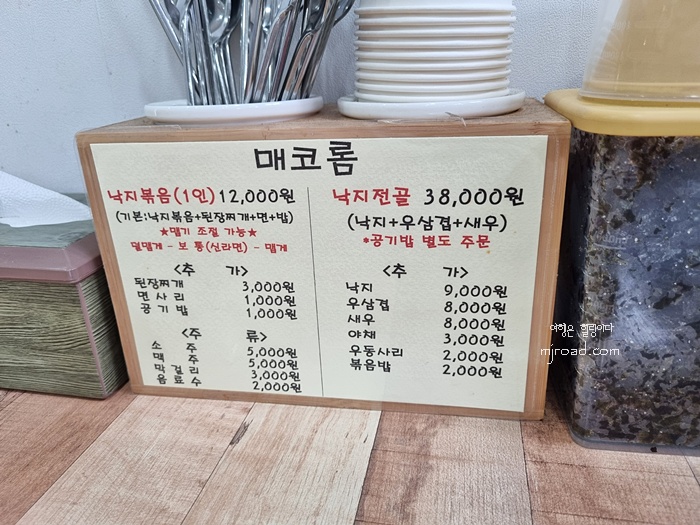 매코롬
낙지볶음(1인) 12,000원
(기본:낙지볶음+된장찌개+면+밥)
★맵기 조절 가능★
덜맵게 - 보통(신라면) - 맵게
<추 가>
된장찌개 3,000원
면사리 1,000원
공기밥 1,000원
<주 류>
소주 5,000원
맥주 5,000원
막걸리 3,000원
음료수 2,000원
낙지전골 38,000원
(낙지+우삼겹+새우)
*공기밥 별도 주문
<추 가>
낙지 9,000원
우삼겹 8,000원
새우 8,000원
야채 3,000원
우동사리 2,000원
볶음밥 2,000원
여행은 힐링이다
mjroad.com